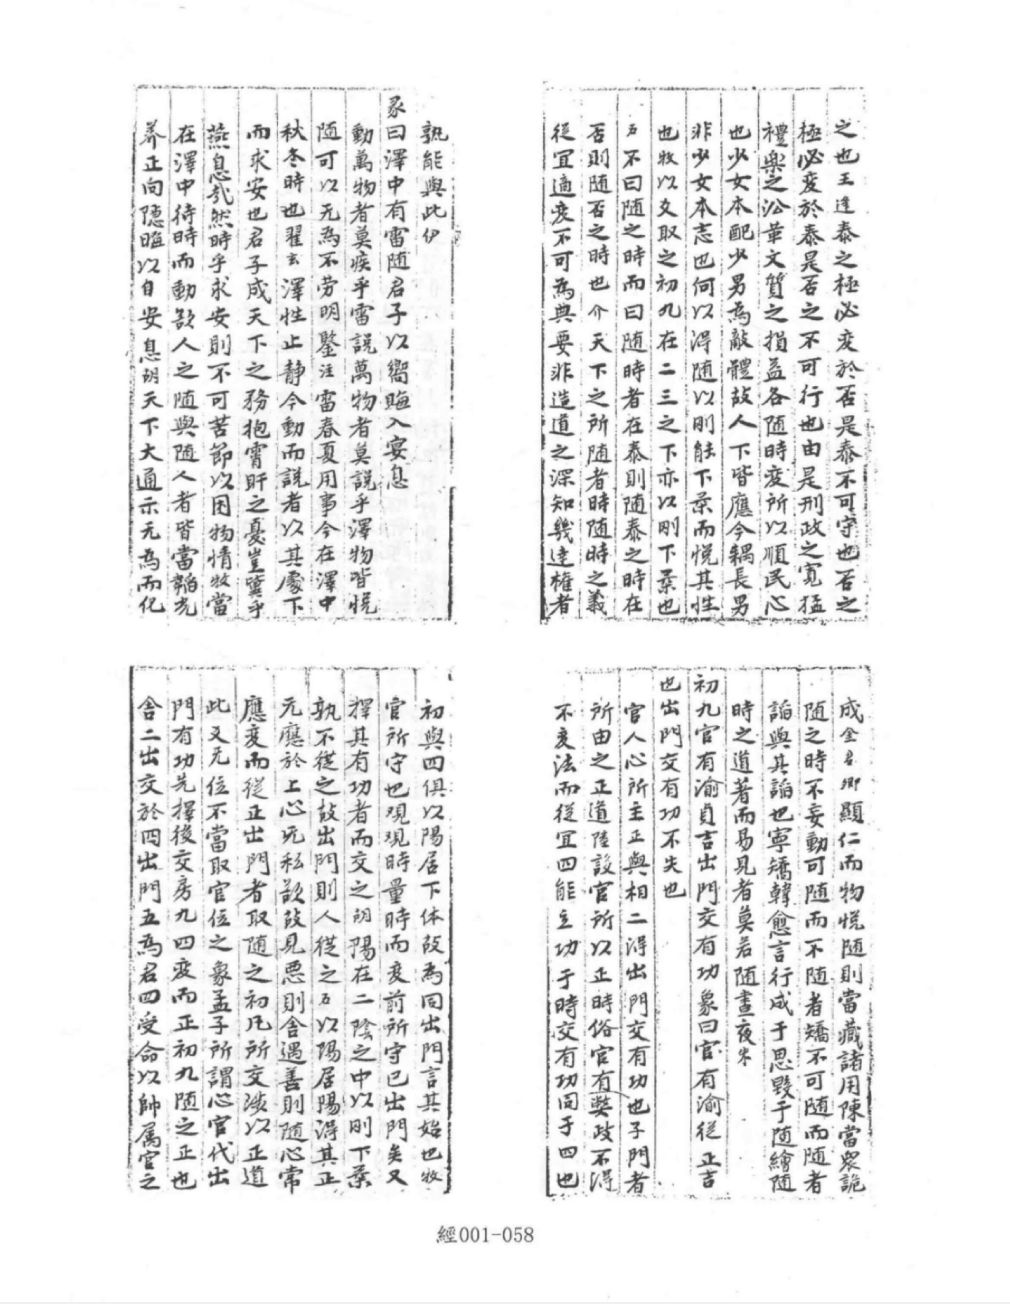 之也王逢泰之極必変於否是泰不可守也否之
極必変於泰是否之不可行也由是刑政之寬猛
禮樂之沿革文質之損益各随時変所以順民心
也少女本配少男為敵體故人下皆應今耦長男
非少女本志也何以得随以刚能下柔而悦其性
也牧以爻取之初九在二三之下亦以刚下柔也
石不曰随之時而曰随時者在泰則随泰之時在
否則随否之時也介天下之所随者時随時之義
従宜適変不可為典要非造道之深知幾達權者
孰能與此伊
象曰澤中有雷随君子以嚮晦入宴息
動萬物者莫疾乎雷說萬物者莫說乎澤物皆悦
随可以无為不劳明鑒注雷春夏用事今在澤中
秋冬時也翟玄澤性止静今動而説者以其處下
而求安也君子成天下之務抱宵旰之憂豈冀乎
燕息㢤然時乎求安則不可苦節以困物情牧當
在澤中待時而動欲人之随與随人者皆當韜光
养正向隠晦以自安息胡天下大通示无為而化
成金君卿顯仁而物悦随則當藏諸用陳當衆詭
随之時不妄動可随而不随者矯不可随而随者
謟與其謟也寧矯韓愈言行成于思毀于随繪随
時之道著而易見者莫若随晝夜朱
初九官有渝貞吉出門交有功象曰官有渝従正吉
也出門交有功不失也
官人心所主正與相二得出門交有功也子門者
所由之正道陸設官所以正時俗官有獘政不得
不変法而従宜四能立功于時交有功同于四也
初與四俱以陽居下体故為同出門言其始也牧
官所守也观观時量時而変前所守已出門矣又
擇其有功者而交之胡陽在二陰之中以刚下柔
孰不従之故出門則人従之石以陽居陽得其正
无應於上心无私欲故見悪則舍遇善則随心常
應変而従正出門者取随之初凡所交渉以正道
此又无位不當取官位之象孟子所謂心官代出
門有功先擇後交房九四変而正初九随之正也
舍二出交於四出門五為君四受命以帥属官之
經001-058